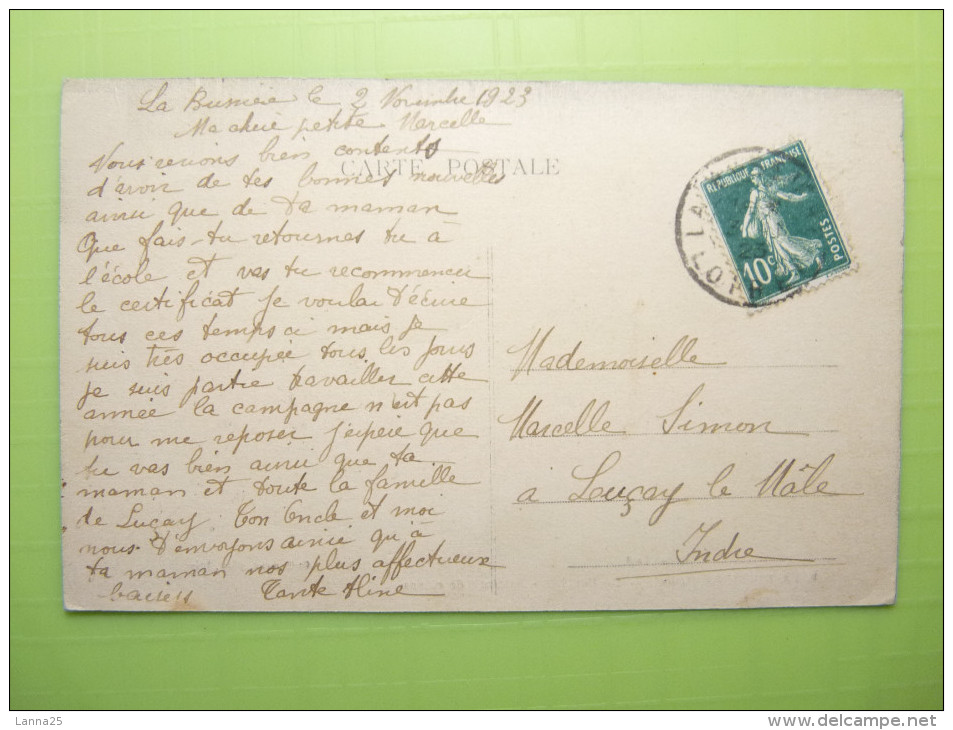 La le 2 Novembre 1923
Ma chère petite Marcelle
CARTE POSTALE
Nous serions bien contents
d'avoir de tes bonnes nouvelles
ainsi que de ta maman
Que fais-tu retournes tu à
l'école et vas tu recommencer
le certificat je voulai t'écrire
tous ces temps ci mais je
suis très occupée tous les jours
je suis partie travailler cette
année la campagne n'est pas
pour me reposer j'espère que
tu vas bien ainsi que ta
maman et toute la famille
de Luçay Ton Oncle et moi
nous t'envoyons ainsi qu'à
ta maman nos plus affectueux
baisers Tante Aline
REPUBLIQUE FRANÇAISE
POSTES
10c
LOT
Mademoiselle
Marcelle Simon
a Luçay le Mâle
Indre
Lanna25
www.delcampe.net